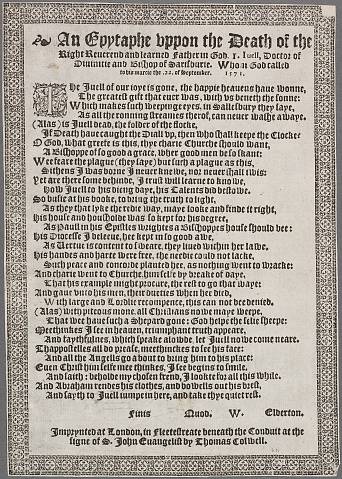 An Epytaphe vppon the Death of the
Right Reuerend and learned Father in God. I. Iuell, Doctor of
Diuinitie and Bishop of Sarisburie. Whom God called
to his mercie the .22. of September. 1571.
The Iuell of our ioye is gone, the happie heauens haue wonne,
The greatest gift that euer was, with vs beneth the sonne:
Which makes such weeping eyes, in Salisbury they saye,
As all the ronning streames therof, can neuer washe a waye.
(Alas) is Iuell dead, the folder of the flocke,
If Death haue caught the Diall vp, then who shall keepe the Clocke
O God, what greefe is this, thys charie Churche should want,
A Bishoppe of so good a grace, wher good men be so skant:
We feare the plague (they saye) but such a plague as this,
Sithens I was borne I neuer knewe, nor neuer shall iwis:
Yet are there some behinde, I trust will learne to knowe,
how Iuell to his dieng daye, his Talents did bestowe.
So busie at his booke, to bring the truth to light,
As they that lyke the redie way, maye looke and finde it right,
His house and houshold was so kept for his degree,
As Paull in his Epistles wrights a Bishoppes house should bee:
his Diocesse I beleeue, he kept in so good awe,
As Vertue is content to sweare, they liued within her lawe.
his handes and harte were free, the needie could not lacke,
Such peace and concorde planted he, as nothing went to wracke:
And charie went to Churche himselfe by breake of daye,
That his example might procure, the rest to go that waye:
And gaue vnto his men, their dueties When her died,
With large and Lordlie recompence, this can not bee denied.
(Alas) with pitious mone, all Christians nowe maye weepe,
That wee haue such a Shepard gone: God helpe the selie sheepe:
Meethinkes I see in heauen, triumphant truth appeare,
And faythfulnes, which speake alowde, let Iuell nowe come neare.
Thapposselles all do prease, meethinckes to see his face:
And all the Angells go about to bring him to his place:
Euen Christ himselfe mee thinkes, I see begins to smile,
And saith: beholde my chosen frend, I lookte for all this while.
And Abraham rendes his clothes, and bowells out his brest,
And sayth to Iuell iumpe in here, and take thye quiet rest.
Finis Quod. W. Elderton.
Imprynted at London, in Fleetestreate beneath the Conduit at the
signe of S. John Euangelist by Thomas Colwell.